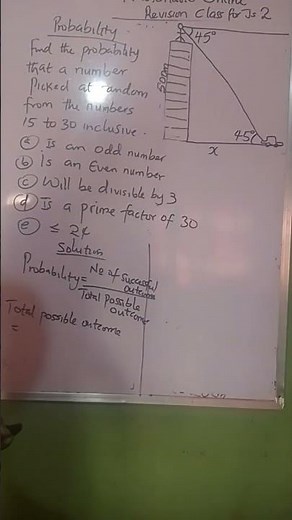 Revision Class for Js 2
Probability
Find the probability
that a number
Picked at random
from the numbers
15 to 30 inclusive.
(a) Is an odd number
(b) Is an Even number
(c) Will be divisible by 3
(d) Is a prime factor of 30
(e) ≤ 24
Solution
Probability = No of successful outcomes
Total possible outcome
Total possible outcome
=
45°
500m
45°
x